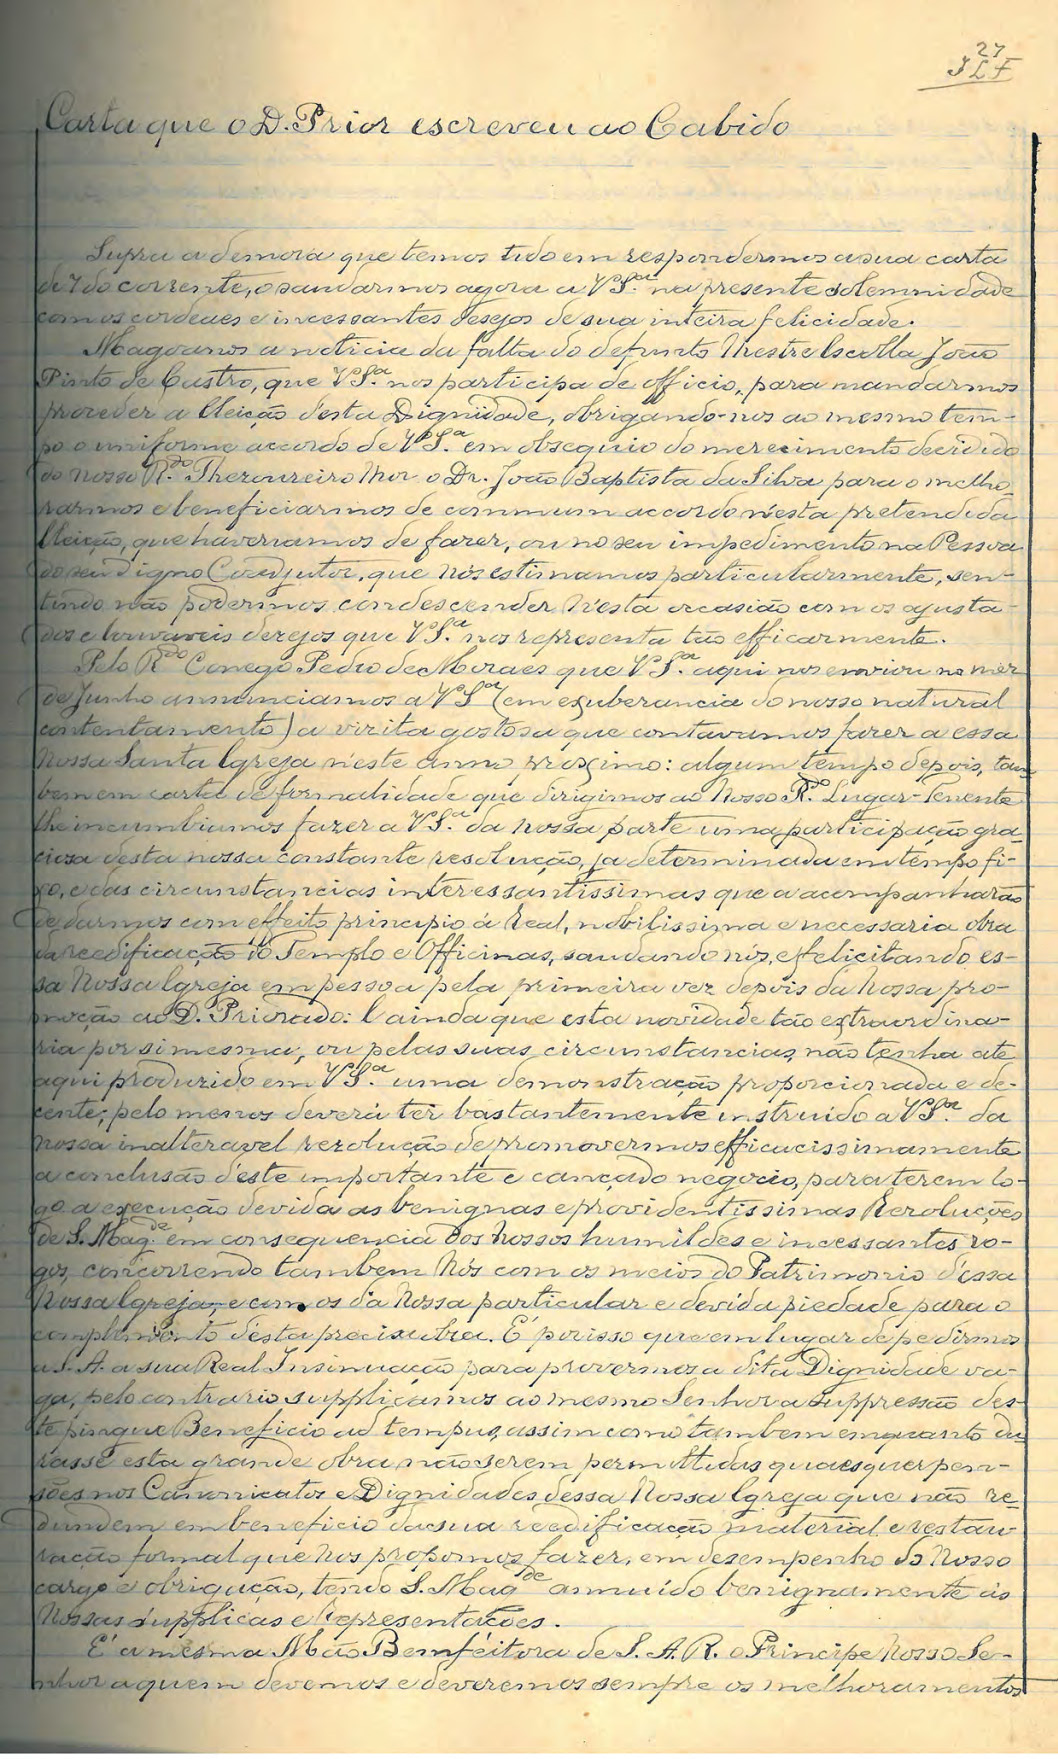 27
JLF
Carta que o D. Prior escreveu ao Cabido
Supra a demora que temos tido em respondermos a sua carta
de 7 do corrente, o saudarmos agora a VªSª na presente solemnidade
com os cordeaes e incessantes desejos de sua inteira felicidade.
Magoanos a noticia da falta do defunto Mestre Escolla João
Pinto de Castro, que VªSª nos participa de officio, para mandarmos
proceder a Eleição d'esta Dignidade, obrigando-nos ao mesmo tem-
po o uniforme accordo de VªSª em obsequio do merecimento decidido
do nosso R.do Thezoureiro Mor o Dr. João Baptista da Silva para o melho-
rarmos e beneficiarmos de commum accordo n'esta pretendida
Eleição, que haveriamos de fazer, ou no seu impedimento na Pessoa
do seu digno Coadjutor, que Nós estimamos particularmente, sen-
tindo não podermos condescender n'esta occasião com os ajusta-
dos e louvaveis dezejos que VªSª nos representa tão efficazmente.
Pelo R.do Conego Pedro de Moraes que VªSª aqui nos enviou no mez
de Junho annunciamos a VªSª (em exuberancia do nosso natural
contentamento) a vizita gostosa que contavamos fazer a essa
Nossa Santa Igreja n'este anno proximo: algum tempo depois, tam-
bem em carta de formalidade que dirigimos ao Nosso R.do Lugar-Tenente
lhe incumbiamos fazer a VªSª da nossa parte uma participação gra-
ciosa desta nossa constante resolução, ja determinada em tempo fi-
xo, e das circunstancias interessantissimas que a acompanharão
de darmos com effeito principio á Real, nobilissima e necessaria obra
da reedificação do Templo e Officinas, saudando nós, e felicitando es-
sa Nossa Igreja em pessoa pela primeira vez depois da Nossa pro-
moção ao D. Priorado: E ainda que esta novidade tão extraordina-
ria por si mesma, ou pelas suas circunstancias, não tenha até
aqui produzido em VªSª uma demonstração proporcionada e de-
cente; pelo menos deverá ter bastantemente instruido a VªSª da
nossa inalteravel rezolução de promovermos efficacissimamente
a conclusão d'este importante e cançado negocio, para terem lo-
go a execução devida as benignas e providentissimas Rezoluções
de S. Mag.de em consequencia dos Nossos humildes e incessantes ro-
gos, concorrendo tambem Nós com os meios do Patrimonio d'essa
Nossa Igreja, e com os da Nossa particular e devida piedade para o
complemento d'esta precisa obra. É por isso que em lugar de pedirmos
a S. A. a sua Real Insinuação para provermos a dita Dignidade va-
ga, pelo contrario supplicamos ao mesmo Senhor a suppressão des-
te pingue Beneficio ad tempus, assim como tambem emquanto du-
rasse esta grande obra, não serem permittidas quaesquer pen-
sões nos Canonicatos e Dignidades dessa Nossa Igreja que não re-
dundem em beneficio da sua reedificação material e restau-
ração formal que Nos propomos fazer, em desempenho do Nosso
cargo e obrigação, tendo S. Mag.de annuido benignamente ás
Nossas supplicas e Representações.
E' a mesma Mão Bemfeitora de S. A. R. o Principe Nosso Se-
nhor a quem devemos e deveremos sempre os melhoramentos